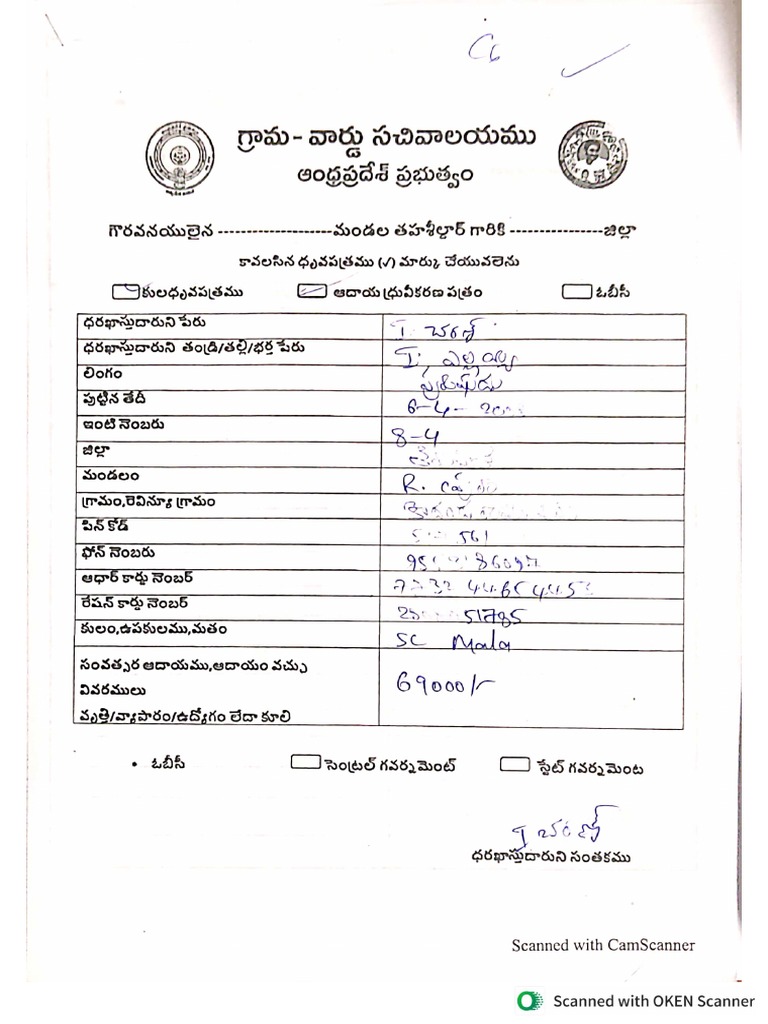 C6
గ్రామ - వార్డు సచివాలయము
ఆంధ్రప్రదేశ్ ప్రభుత్వం
గౌరవనయులైన --------------------మండల తహశీల్దార్ గారికి ----------------జిల్లా
కావలసిన ధృవపత్రము (✓) మార్కు చేయువలెను
కులధృవపత్రము ఆదాయ ధ్రువీకరణ పత్రం ఓబీసీ
ధరఖాస్తుదారుని పేరు T. చరణ్
ధరఖాస్తుదారుని తండ్రి/తల్లి/భర్త పేరు T. ఎల్లయ్య
లింగం పురుషుడు
పుట్టిన తేదీ 6-4-
ఇంటి నెంబరు 8-4
జిల్లా
మండలం R.
గ్రామం,రెవిన్యూ గ్రామం
పిన్ కోడ్ 561
ఫోన్ నెంబరు
ఆధార్ కార్డు నెంబర్
రేషన్ కార్డు నెంబర్ 51785
కులం,ఉపకులము,మతం SC Mala
సంవత్సర ఆదాయము,ఆదాయం వచ్చు 69000/-
వివరములు
వృత్తి/వ్యాపారం/ఉద్యోగం లేదా కూలి
• ఓబీసీ సెంట్రల్ గవర్నమెంట్ స్టేట్ గవర్నమెంట
T చరణ్
ధరఖాస్తుదారుని సంతకము
Scanned with CamScanner
Scanned with OKEN Scanner